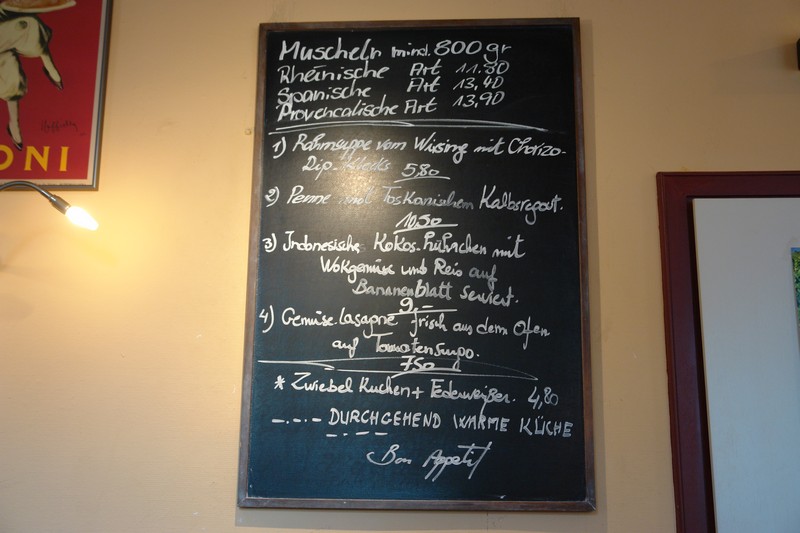 Muscheln mind. 800 gr
Rheinische Art 11.80
Spanische Art 13,40
Provencalische Art 13,90
1) Rahmsuppe vom Wirsing mit Chorizo-
Dip-Klecks
5,80
2) Penne mit Toskanischem Kalbsragout.
10.50
3) Indonesische Kokos-hühnchen mit
Wokgemüse und Reis auf
Bananenblatt serviert.
9,-
4) Gemüse-lasagne frisch aus dem Ofen
auf Tomatensugo.
7,50
* Zwiebel Kuchen + Federweißer. 4,80
DURCHGEHEND WARME KÜCHE
Bon Appetit
ONI